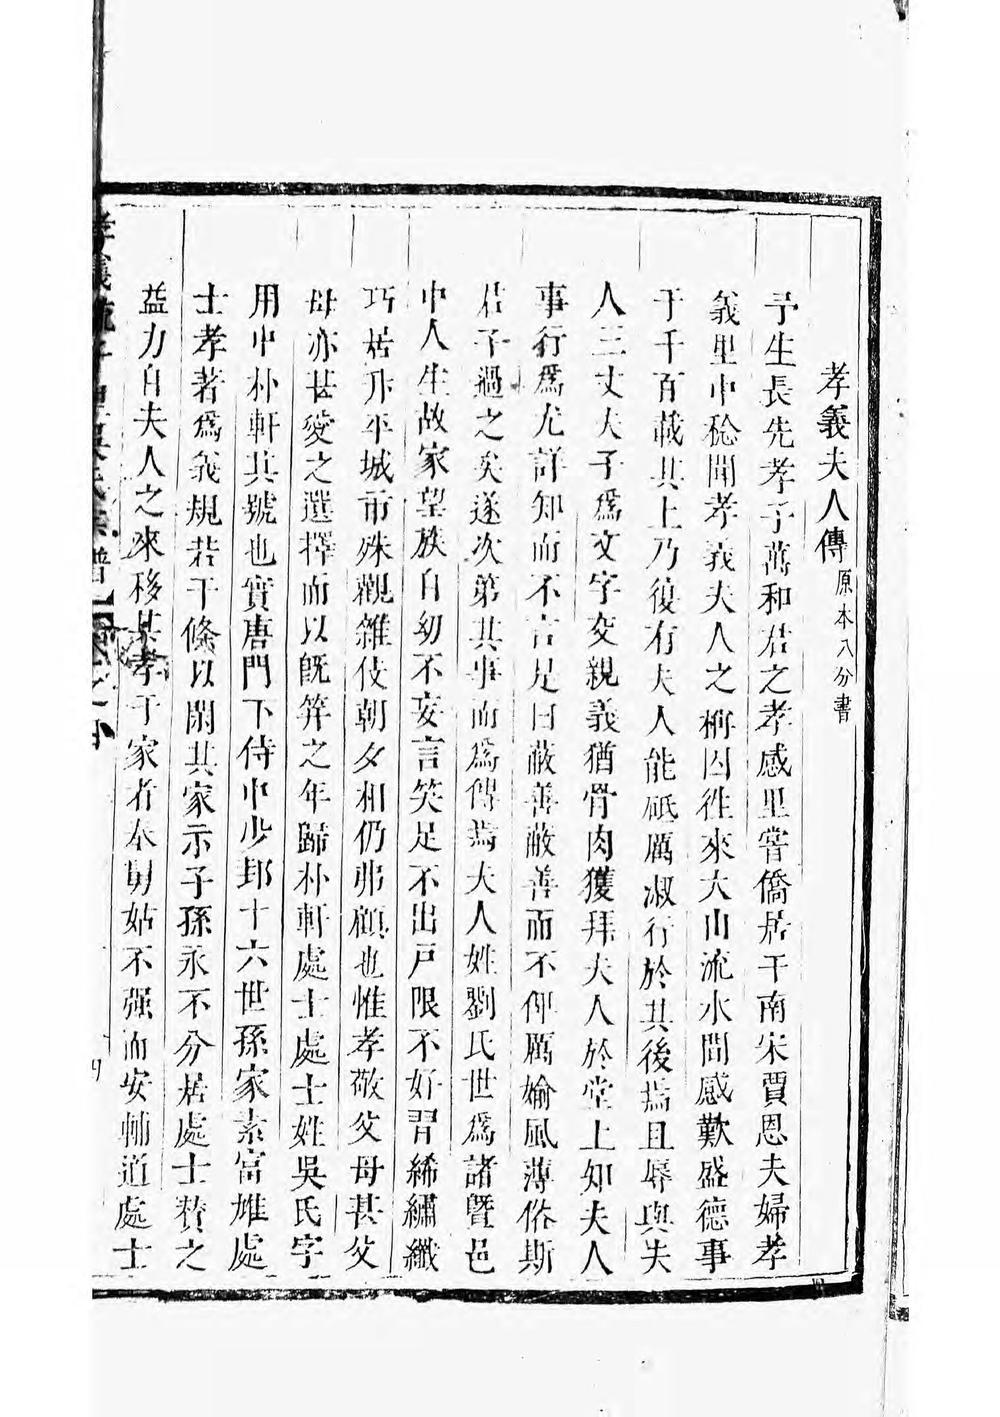 孝義夫人傳 原本八分書
予生長先孝子萬和君之孝感里嘗僑居于南宋賈恩夫婦孝
義里中稔聞孝義夫人之稱因徃來大山流水間感歎盛德事
于千百載其上乃復有夫人能砥厲淑行於其後焉且辱與夫
人三丈夫子爲文字交親義猶骨肉獲拜夫人於堂上知夫人
事行爲尤詳知而不言是曰蔽善蔽善而不仰厲媮風薄俗斯
君子過之矣遂次第其事而爲傳焉夫人姓劉氏世爲諸暨邑
中人生故家望族自幼不妄言笑足不出戸限不好習絺繡纖
巧居升平城市殊觀雜伎朝夕相仍弗顧也惟孝敬父母甚父
母亦甚愛之選擇而以旣笄之年歸朴軒處士處士姓吳氏字
用中朴軒其號也實唐門下侍中少邽十六世孫家素富雄處
士孝著爲義規若干條以閑其家示子孫永不分居處士贊之
益力自夫人之來移其孝于家者奉舅姑不强而安輔道處士
孝義 里吳氏宗譜 卷之
四